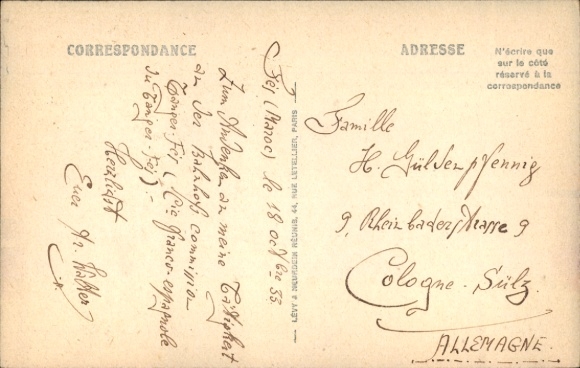 CORRESPONDANCE
Fez, (Maroc) le 18 octobre 33.
Zum Andenken an meine Tätigkeit
an der Bahnhofs commission
Tanger-Fez (Cie franco-espagnole
du Tanger-Fez). -
Herzlichst
Euer Walter
LÉVY & NEURDEIN RÉUNIS, 44, RUE LETELLIER, PARIS
ADRESSE
N'écrire que
sur le côté
réservé à la
correspondance
Famille
H. Güldenpfennig
9, Rheinbaderstrasse 9
Cologne-Sülz
ALLEMAGNE.